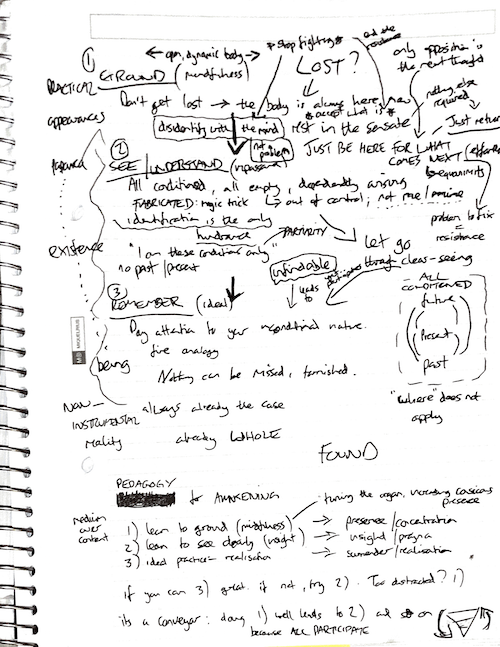 ①
← open, dynamic body →
* stop fighting *
and the resistance
only opposition is
the next thought
PRACTICAL
GROUND (mindfulness)
LOST?
nothing else
required
Don't get lost → the body is always here, now
* accept what is *
Just return
appearances
disidentify with the mind
rest in the sensate
②
not
problem
JUST BE HERE FOR WHAT
COMES NEXT
SEE/UNDERSTAND (vipassana)
All conditioned, all empty, dependently arising
FABRICATED: magic trick ↳ out of control; not me/mine
identification is the only
hindrance
problem to fix
=
resistance
existence
"I am these conditions only"
no past/present
Let go
through clear-seeing
unfindable
leads
to
③
REMEMBER (ideal)
ALL
CONDITIONED
future
Present
past
Pay attention to your unconditioned nature.
fire analogy
MIQUELRIUS
being
Nothing can be missed, tarnished.
"where" does not
apply
NON-
INSTRUMENTAL
always already the case
reality
already WHOLE
FOUND
PEDAGOGY
to AWAKENING
tuning the organ,
presence
medium
over
content
1) learn to ground (mindfulness) → presence/concentration
2) learn to see clearly (insight) → insight/prajna
3) ideal practice - realisation → surrender/realisation
if you can 3) great. if not, try 2). Too distracted? 1)
its a conveyor: doing 1) well leads to 2) and so on
because ALL PARTICIPATE